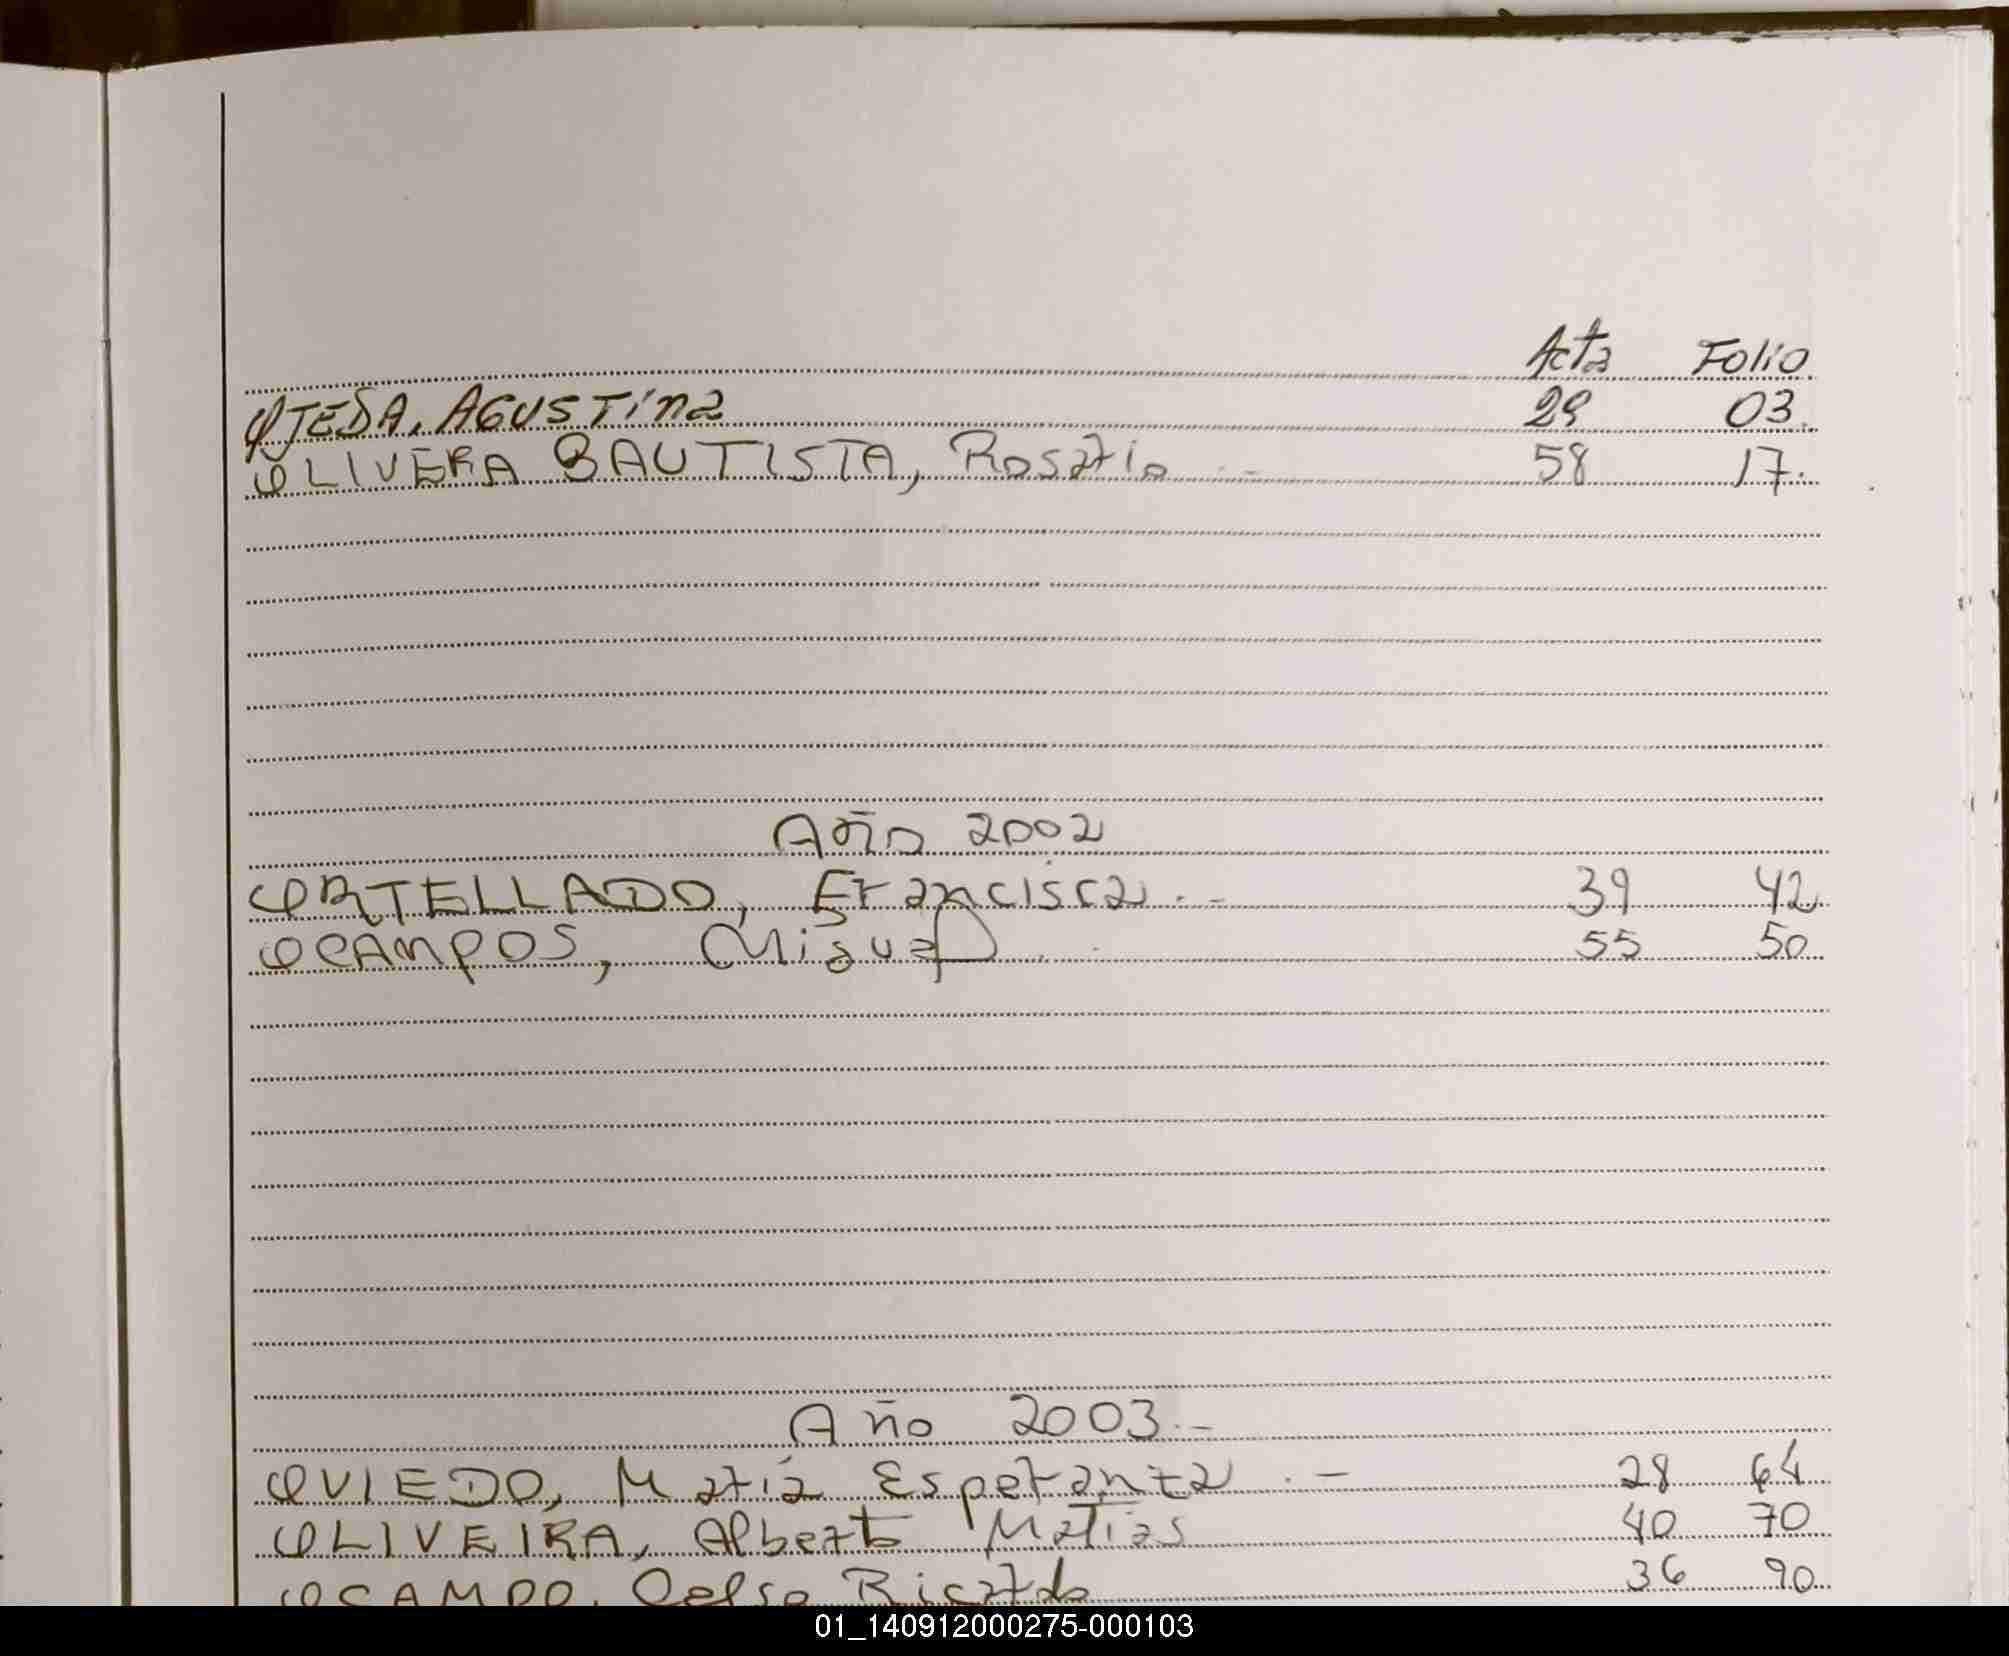 Acta Folio
OJEDA, AGUSTINA 29 03.
OLIVERA BAUTISTA, Rosario .- 58 17.
Año 2002
ORTELLADO, Francisca .- 39 42
OCAMPOS, Miguel . 55 50
Año 2003.-
OVIEDO, María Esperanza .- 28 64
OLIVEIRA, Alberto Matias 40 70
OCAMPO, Celso Ricardo 36 90
01_140912000275-000103